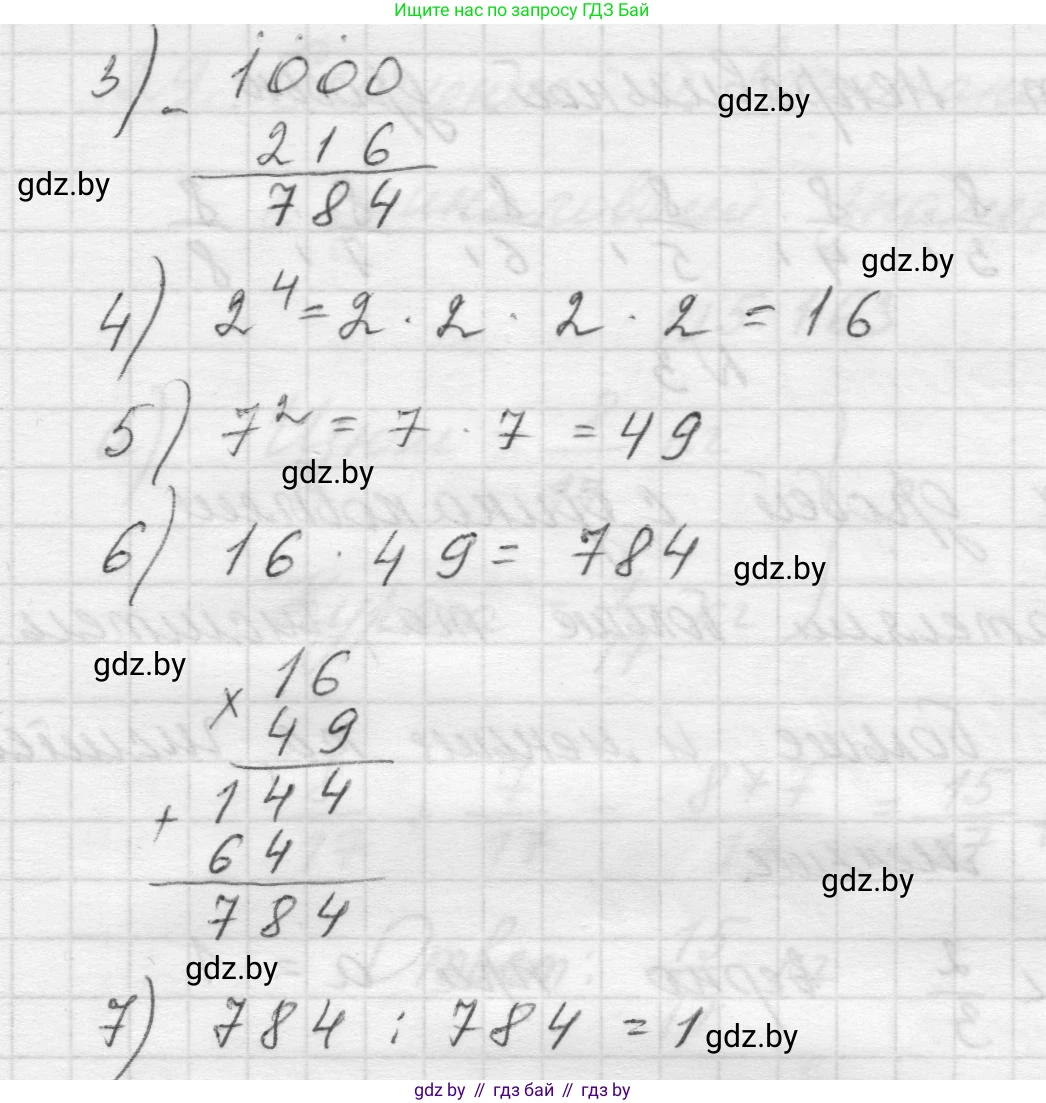 Ищите нас по запросу ГДЗ Бай
3) - 1000
gdz.by
216
gdz.by
784
gdz.by
4) 2⁴ = 2 · 2 · 2 · 2 = 16
5) 7² = 7 · 7 = 49
gdz.by
6) 16 · 49 = 784
gdz.by
gdz.by
16
×
49
144
+
64
gdz.by
784
gdz.by
7) 784 : 784 = 1
gdz.by
gdz.by // гдз бай // гдз by